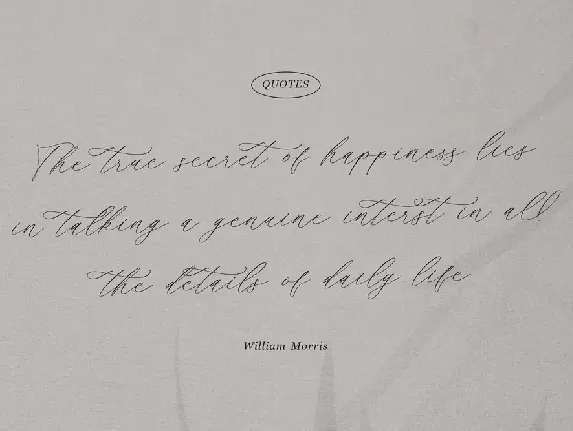 QUOTES
The true secret of happiness lies
in talking a genuine interst in all
the details of daily life
William Morris